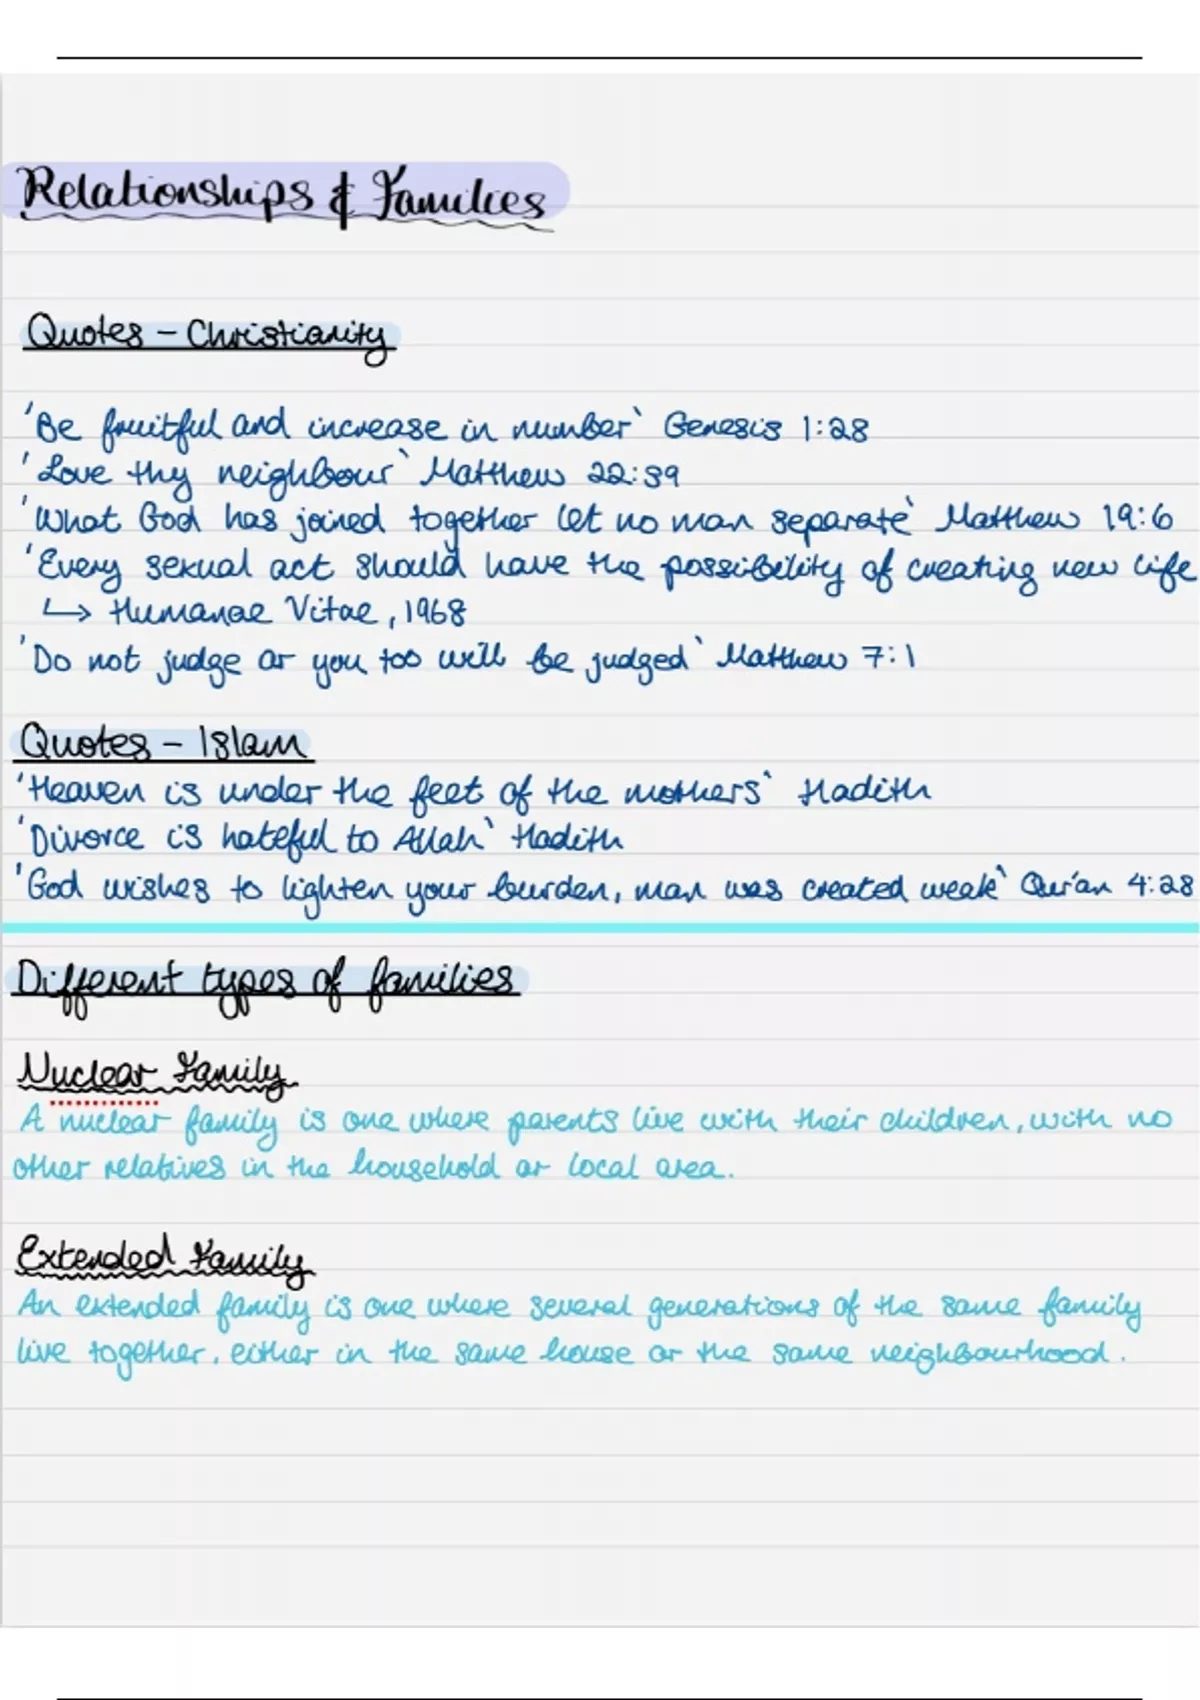 Relationships & Families
Quotes – Christianity
'Be fruitful and increase in number` Genesis 1:28
'Love thy neighbour` Matthew 22:39
'What God has joined together let no man separate` Matthew 19:6
'Every sexual act should have the possibility of creating new life
↳ Humanae Vitae, 1968
'Do not judge or you too will be judged` Matthew 7:1
Quotes – Islam
'Heaven is under the feet of the mothers` Hadith
'Divorce is hateful to Allah` Hadith
'God wishes to lighten your burden, man was created weak` Qur'an 4:28
Different types of families
Nuclear Family
A nuclear family is one where parents live with their children, with no
other relatives in the household or local area.
Extended Family
An extended family is one where several generations of the same family
live together, either in the same house or the same neighbourhood.